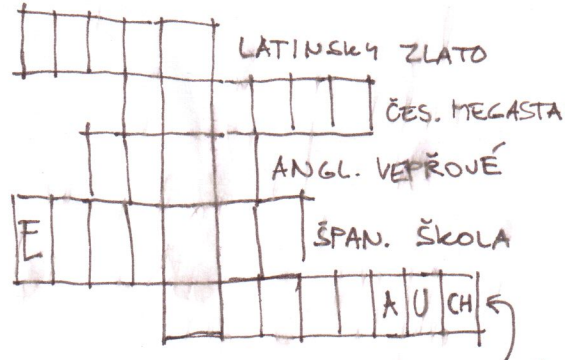 LATINSKY ZLATO
ČES. MEGASTA
ANGL. VEPŘOVÉ
E ŠPAN. ŠKOLA
A U CH